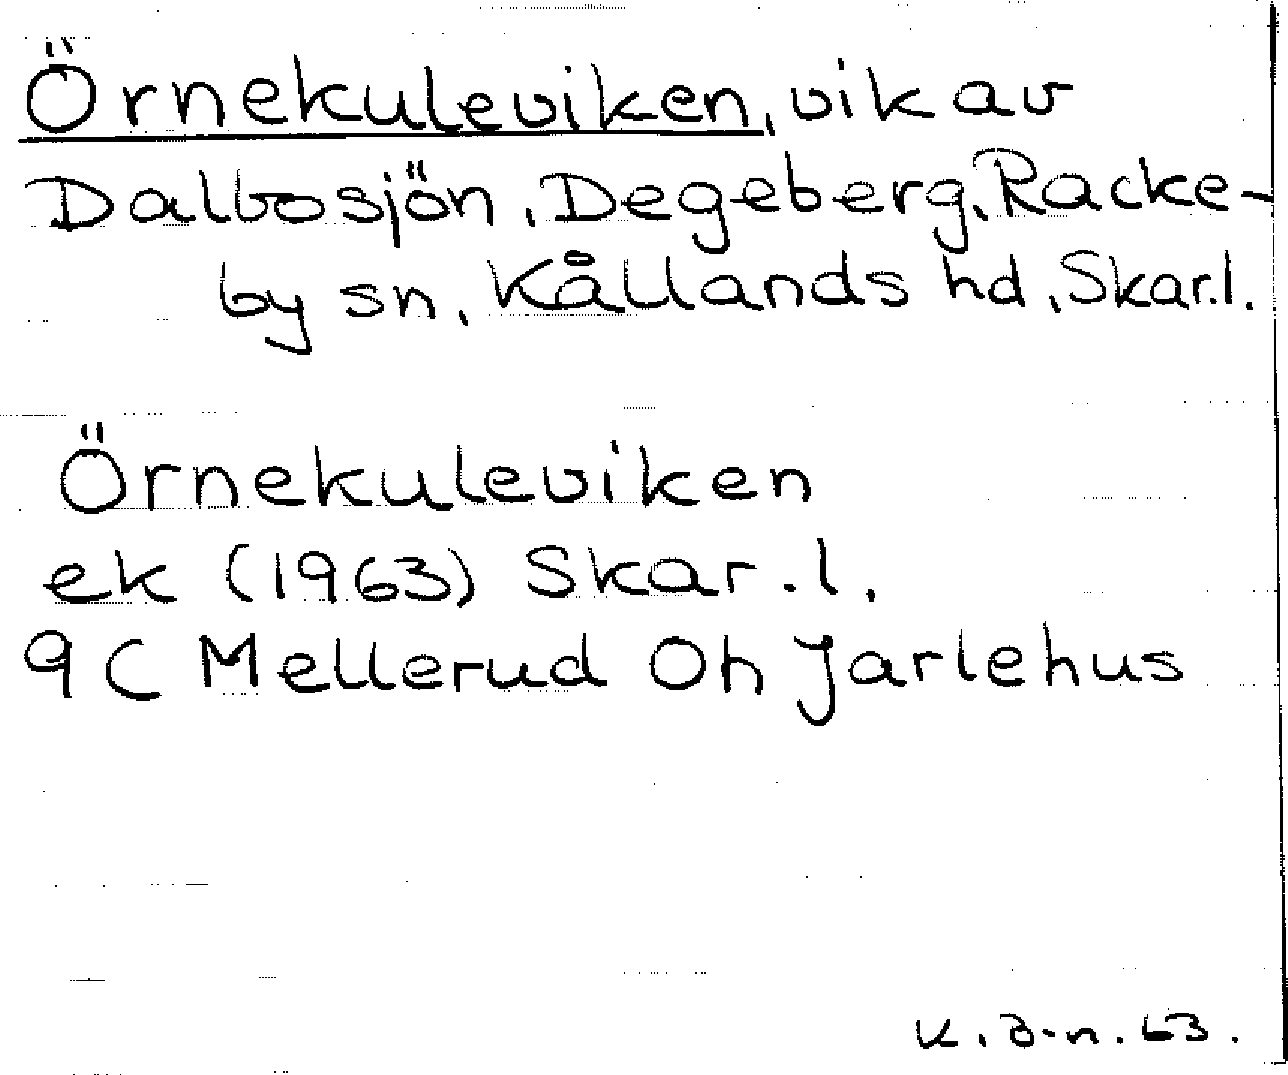 Örnekuleviken, vik av
Dalbosjön, Degeberg, Racke-
by sn, Kållands hd, Skar.l.
Örnekuleviken
ek (1963) Skar.l.
9C Mellerud Oh Jarlehus
63.